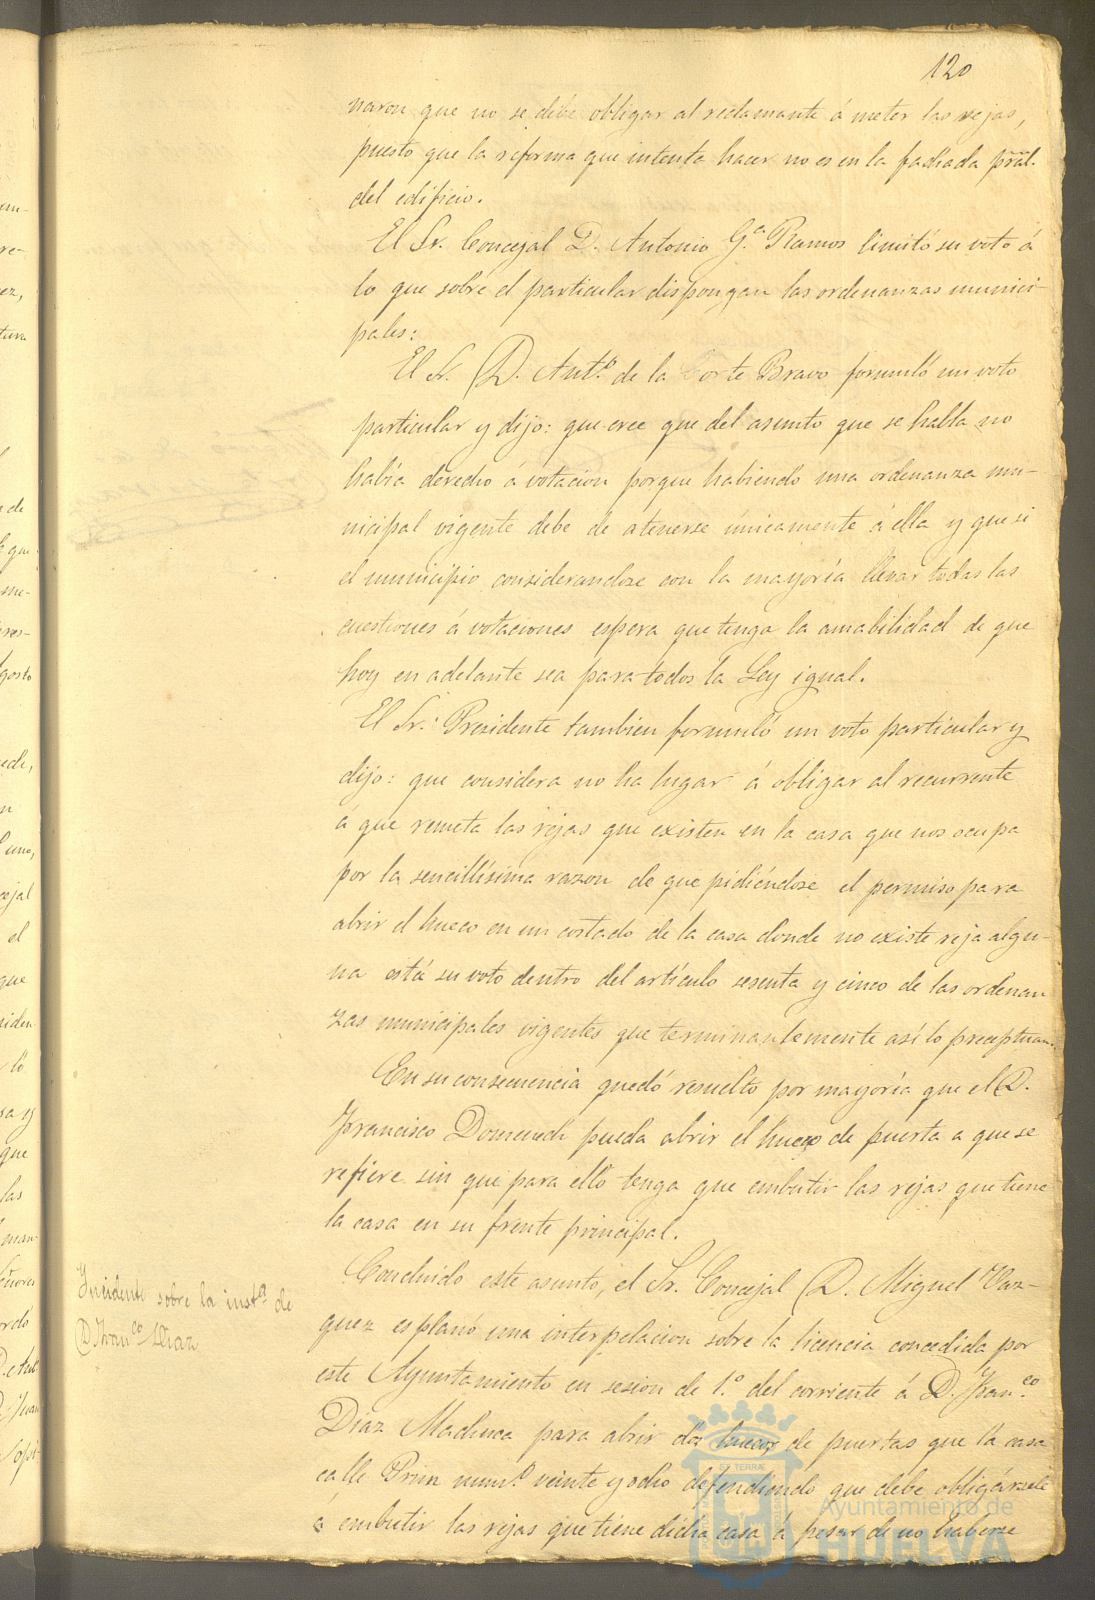 120
naron que no se debe obligar al reclamante á meter las rejas,
puesto que la reforma que intenta hacer no es en la fachada pral.
del edificio.
El Sr. Concejal D. Antonio G.ª Ramos limitó su voto á
lo que sobre el particular dispongan las ordenanzas munici-
pales:
El Sr. D. Ant.º de la Corte Bravo formuló un voto
particular y dijo: que cree que del asunto que se habla no
había derecho á votacion porque habiendo una ordenanza mu-
nicipal vigente debe de atenerse únicamente á ella y que si
el municipio considerandose con la mayoría llevar todas las
cuestiones á votaciones espera que tenga la amabilidad de que
hoy en adelante sea para todos la Ley igual.
El Sr. Presidente tambien formuló un voto particular y
dijo: que considera no ha lugar á obligar al recurrente
á que remeta las rejas que existen en la casa que nos ocupa
por la sencillísima razon de que pidiéndose el permiso para
abrir el hueco en un costado de la casa donde no existe reja algu-
na está su voto dentro del artículo sesenta y cinco de las ordenan
zas municipales vigentes que terminantemente así lo preceptuan.
En su consecuencia quedó resuelto por mayoría que el D.
Francisco Domenech pueda abrir el hueco de puerta a que se
refiere sin que para ello tenga que embutir las rejas que tiene
la casa en su frente principal.
Incidente sobre la inst.ª de
D. Fran.co Diaz
Concluido este asunto, el Sr. Concejal D. Miguel Vaz-
quez esplanó una interpelacion sobre la licencia concedida por
este Ayuntamiento en sesion de 1.º del corriente á D. Fran.co
Diaz para abrir dos huecos de puertas que la casa
calle Prim num.º veinte y ocho defendiendo que debe obligársele
á embutir las rejas que tiene dicha casa á pesar de no haberse
Ayuntamiento de
HUELVA